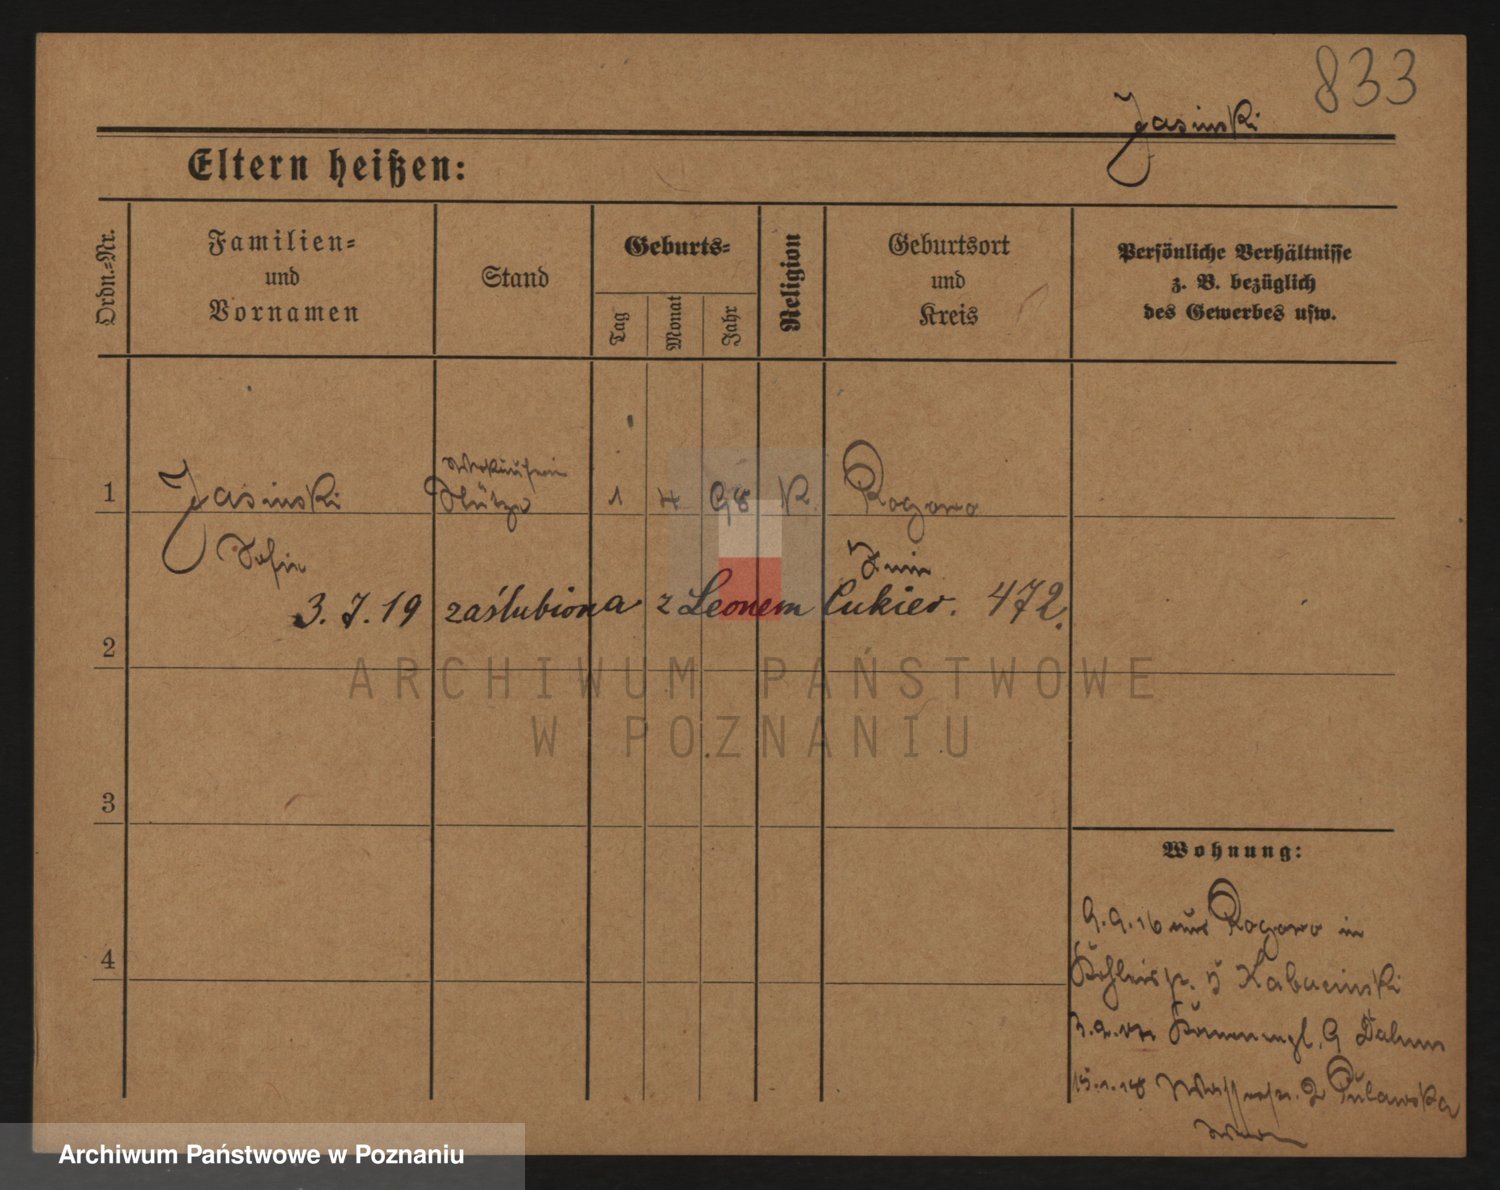 833
Jasinski
Eltern heißen:
Ordn.=Nr.
Familien=
und
Vornamen
Stand
Geburts=
Tag
Monat
Jahr
Religion
Geburtsort
und
Kreis
Persönliche Verhältnisse
z. B. bezüglich
des Gewerbes usw.
Verkäuferin
1 Jasinski Stütze 1 4 98 K. Rogowo
Sofie Znin
3. 7. 19 zaślubiona z Leonem Cukier. 472.
2
ARCHIWUM PAŃSTWOWE
W POZNANIU
3
Wohnung:
4
9.9.16 aus Rogowo in
Kabacinski
9 Dahm
15.1.18 2 Pulawska
Archiwum Państwowe w Poznaniu